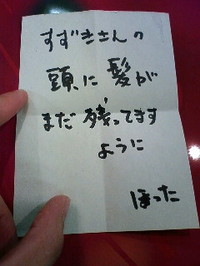 すずきさんの
頭に髪が
まだ残ってます
ように
ほった